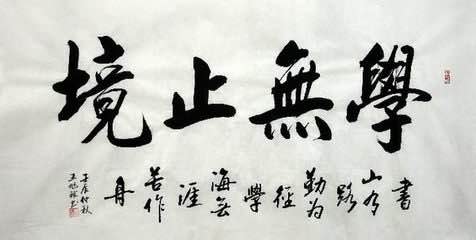 學無止境
書山有路勤為徑學海無涯苦作舟
壬辰仲秋